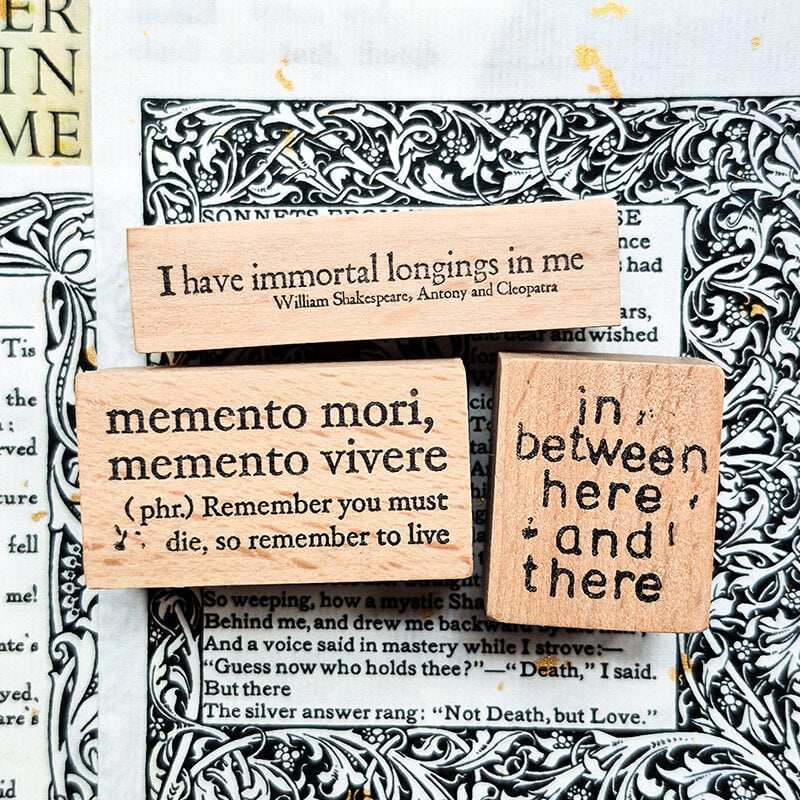 ER
IN
ME
SONNETS FROM
SE
nce
had
I have immortal longings in me
William Shakespeare, Antony and Cleopatra
ars,
the dear and wished
for
memento mori,
memento vivere
(phr.) Remember you must
die, so remember to live
in
between
here
and
there
Tis
the
rved
ture
fell
me!
ate's
yed,
are's
id
So weeping, how a mystic Sha
Behind me, and drew me backward by the
And a voice said in mastery while I strove:—
“Guess now who holds thee?”—“Death,” I said.
But there
The silver answer rang: “Not Death, but Love.”